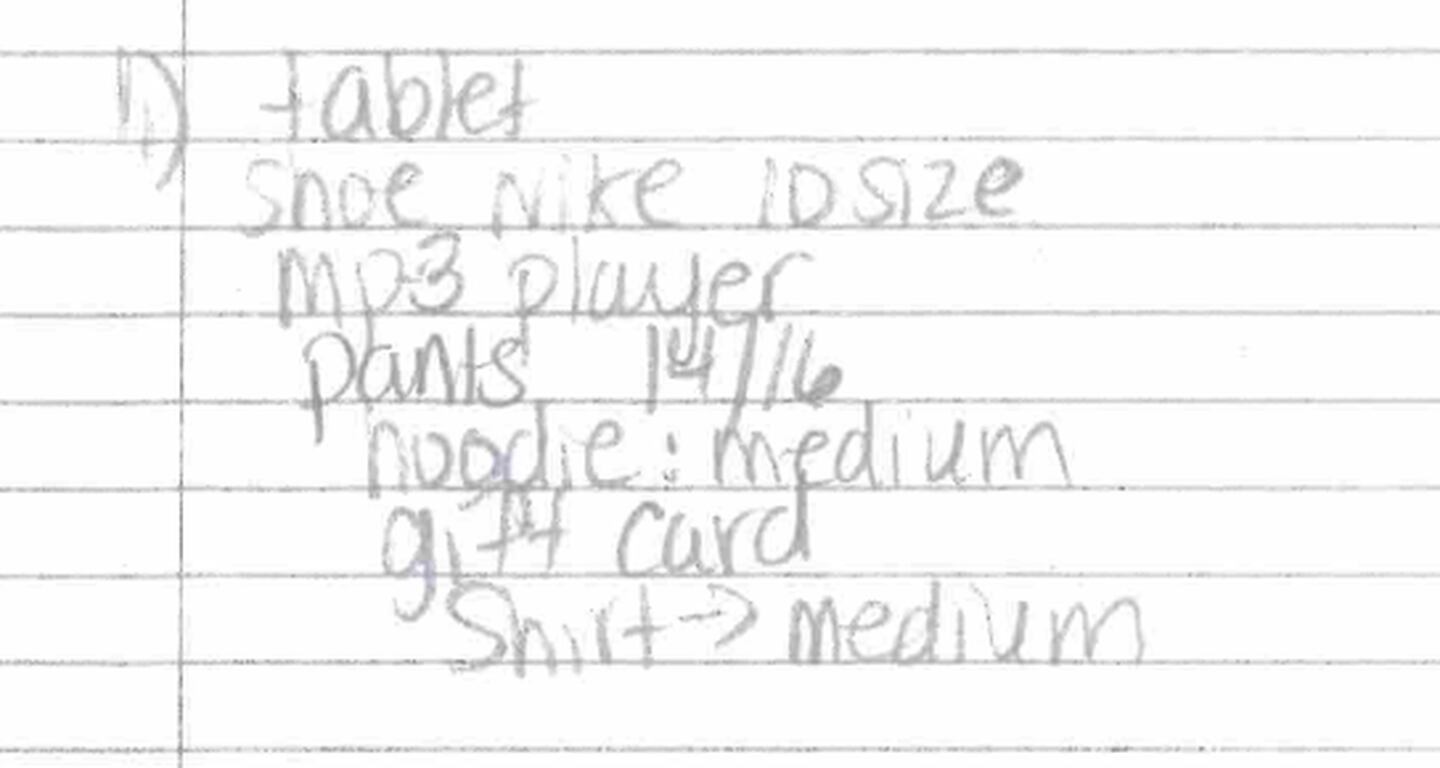 1) tablet
shoe Nike 10 size
mp3 player
pants 14/16
hoodie: medium
gift card
Shirt → medium